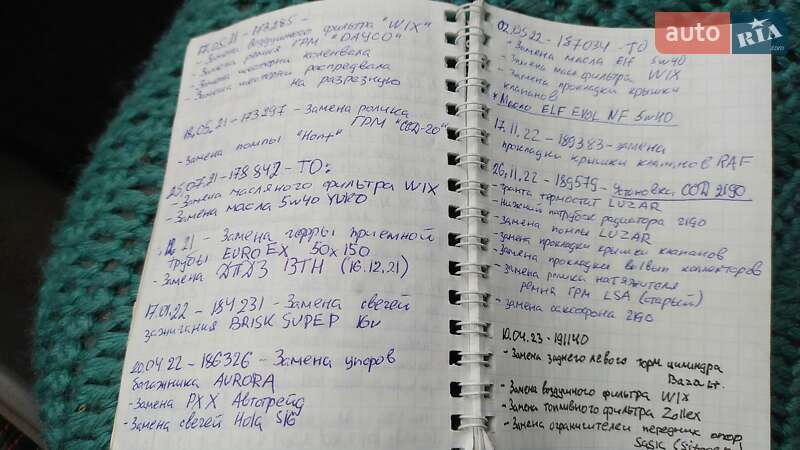 17.05.21 - 173285 -
- Замена воздушного фильтра "WIX"
- Замена ремня ГРМ "DAYCO"
- Замена шестерни коленвала
- Замена шестерни распредвала
на разрезную
18.05.21 - 173297 - Замена ролика
ГРМ
- Замена помпы "Hort"
25.07.21 - 178842 - ТО:
- Замена масляного фильтра WIX
- Замена масла 5w40 YUKO
12.21 - Замена гофры приемной
трубы EUROEX 50x150
- Замена ДПДЗ ВТН (16.12.21)
17.01.22 - 184231 - Замена свечей
зажигания BRISK SUPER
20.04.22 - 186326 - Замена упоров
багажника AURORA
- Замена РХХ Автотрейд
- Замена свечей Hola S16
02.05.22 - 187034 - ТО
- Замена масла Elf 5w40
- Замена масл фильтра WIX
- Замена прокладки крышки
клапанов
* Масло ELF EVOL NF 5w40
17.11.22 - 189383 - замена
прокладки крышки клапанов RAF
26.11.22 - 189579 - Установка СОД 2190
термостат LUZAR
- Нижний патрубок радиатора 2190
- Замена помпы LUZAR
- замена прокладки крышки клапанов
- Замена прокладки вып коллекторов
- замена ролика натяжителя
ремня ГРМ LSA (старый)
- замена саксофона 2190
10.04.23 - 191140
- Замена заднего левого торм цилиндра
- Замена воздушного фильтра WIX
- Замена топливного фильтра Zollex
- Замена ограничителей передних опор
SASIC
auto RIA
.com